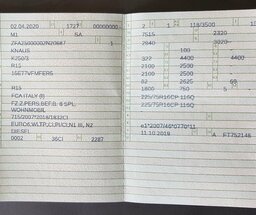 02.04.2020 1727 00000000
M1 SA
ZFA25000002N20687 1
KNAUS
K250/3
R15
16E77VFMFER5
R15
FCA ITALY (I)
FZ.Z.PERS.BEF.B. 8 SPL.
WOHNMOBIL
715/2007*2018/1832CI
EURO6,WLTP,CI,PI/CI,N1 III, N2
DIESEL
0002 36CI 2287
2 1 118/3500
7515 2320
2840 3020
100
322 4400 4400
2100 2500
2100 2500
82 2625 60
1800 750 5
225/75R16CP 116Q
225/75R16CP 116Q
e1*2007/46*0770*11
11.10.2018 A FT752146